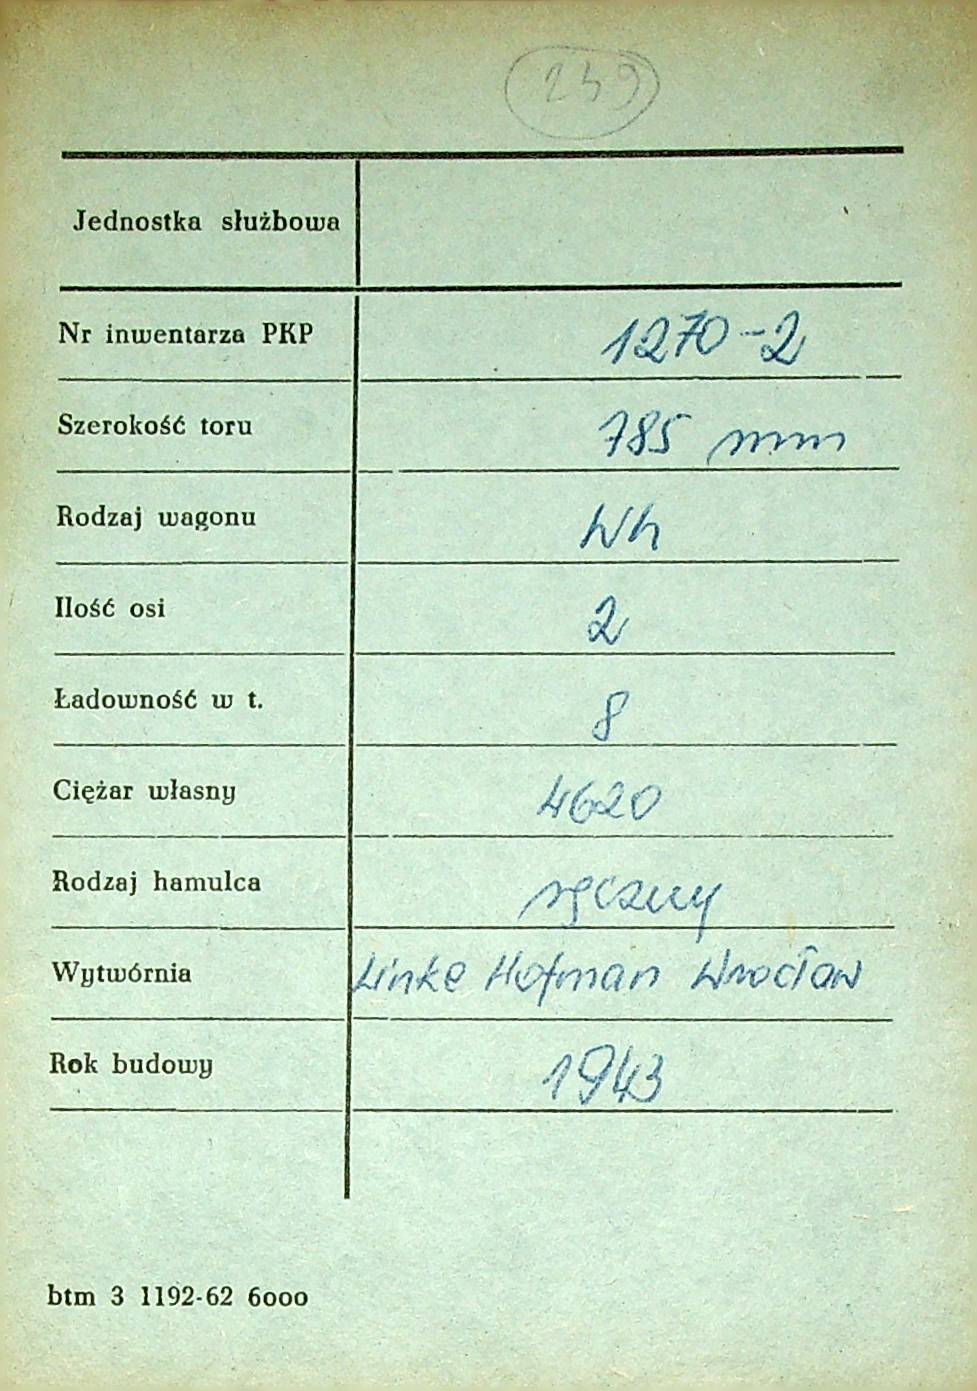 249
Jednostka służbowa
Nr inwentarza PKP 1270-2
Szerokość toru 785 mm
Rodzaj wagonu Wh
Ilość osi 2
Ładowność w t. 8
Ciężar własny 4620
Rodzaj hamulca ręczny
Wytwórnia Linke Hofman Wrocław
Rok budowy 1943
btm 3 1192-62 6000